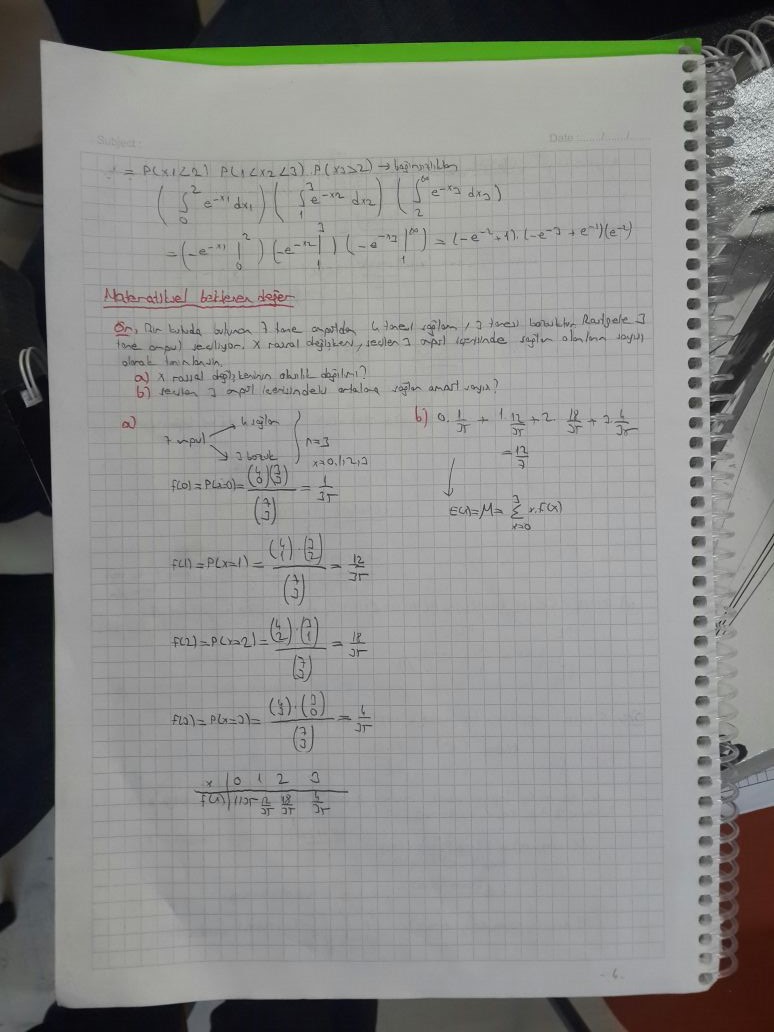 Subject:
Date: ....../....../......
= P(x1<2) P(1<x2<3). P(x3>2) → bağımsızlıktan
( ∫₀² e^-x1 dx1 ) ( ∫₁³ e^-x2 dx2 ) ( ∫₂^∞ e^-x3 dx3 )
= (-e^-x1 |₀² ) (-e^-x2 |₁³ ) (-e^-x3 |₁^∞ ) = (-e^-2+1).(-e^-3 + e^-1)(e^-2)
Matematiksel beklenen değer
Ör, Bir kutuda bulunan 7 tane ampulden 4 tanesi sağlam, 3 tanesi bozuktur. Rastgele 3
tane ampul seçiliyor. X rassal değişkeni, seçilen 3 ampul içerisinde sağlam olanların sayısı
olarak tanımlansın.
a) X rassal değişkeninin olasılık dağılımı?
b) seçilen 3 ampul içerisindeki ortalama sağlam ampul sayısı?
a)
7 ampul → 4 sağlam
→ 3 bozuk
n=3
x=0,1,2,3
f(0)=P(x=0)= (4 0)(3 3) / (7 3) = 1/35
f(1)=P(x=1)= (4 1).(3 2) / (7 3) = 12/35
f(2)=P(x=2)= (4 2).(3 1) / (7 3) = 18/35
f(3)=P(x=3)= (4 3).(3 0) / (7 3) = 4/35
x | 0 1 2 3
f(x) | 1/35 12/35 18/35 4/35
b) 0. 1/35 + 1. 12/35 + 2. 18/35 + 3. 4/35
= 12/7
E(x)=M= Σ³ₓ₌₀ x.f(x)
- 6.